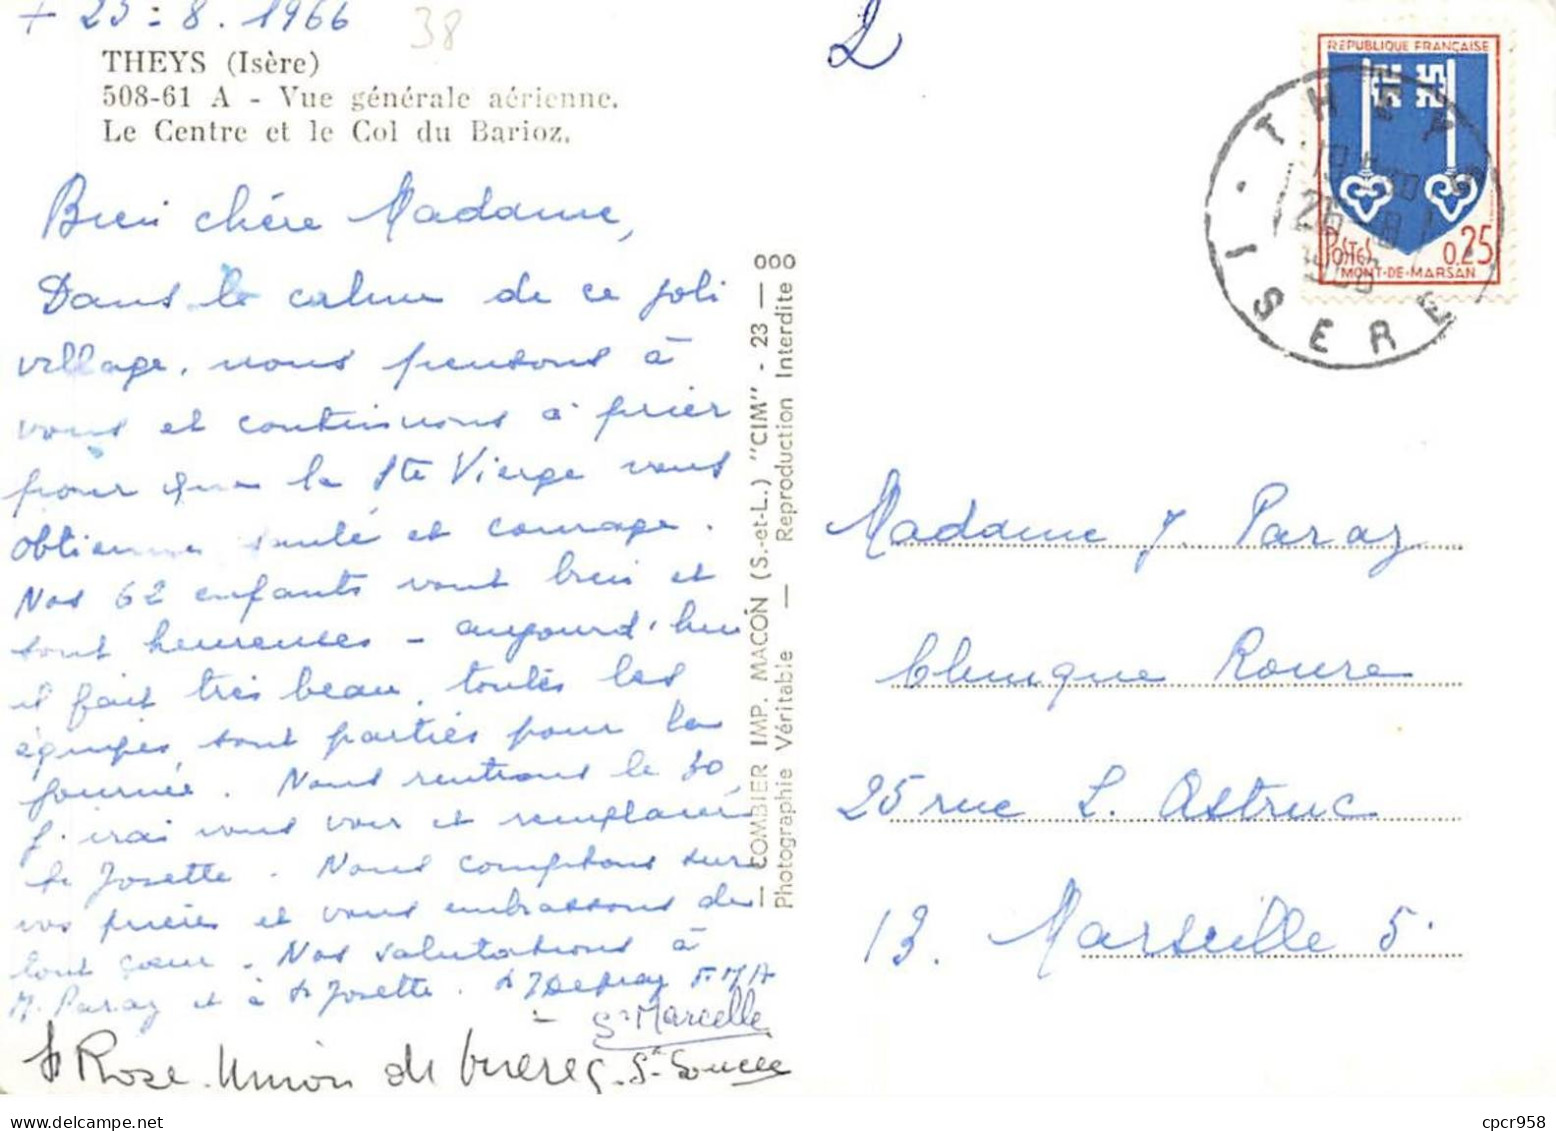 + 25-8. 1966
38
THEYS (Isère)
508-61 A - Vue générale aérienne.
Le Centre et le Col du Barioz.
Bien chère Madame,
Dans le calme de ce joli
village, nous pensons à
vous et continuons à prier
pour que la Ste Vierge vous
obtienne santé et courage.
Nos 62 enfants vont bien et
sont heureuses - aujourd'hui
il fait très beau, toutes les
équipes sont parties pour la
journée. Nous rentrons le 30,
j'irai vous voir et remplacer
Sr Josette. Nous comptons sur
vos prières et vous embrassons de
tout cœur. Nos salutations à
M. Paraz et à Sr Josette. Sr J F.M.A
Sr Marcelle
Sr Rose. Union de prières. Sr
— COMBIER IMP. MACON (S.-et-L.) "CIM" - 23 — 000
Photographie Véritable — Reproduction Interdite 8
2
REPUBLIQUE FRANÇAISE
POSTES 0,25
MONT-DE-MARSAN
THEYS
26-8
ISERE
Madame J. Paraz
Clinique Roure
25 rue L. Astruc
13. Marseille 5.
cpcr958